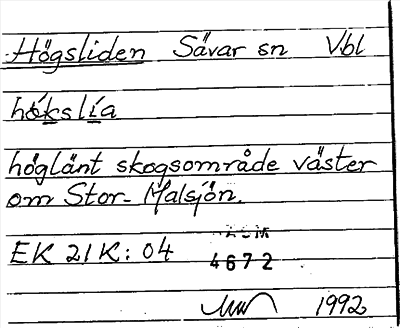 Högsliden Sävar sn Vbl
hókslía
höglänt skogsområde väster
om Stor-Malsjön.
EK 21K:04
4672
1992